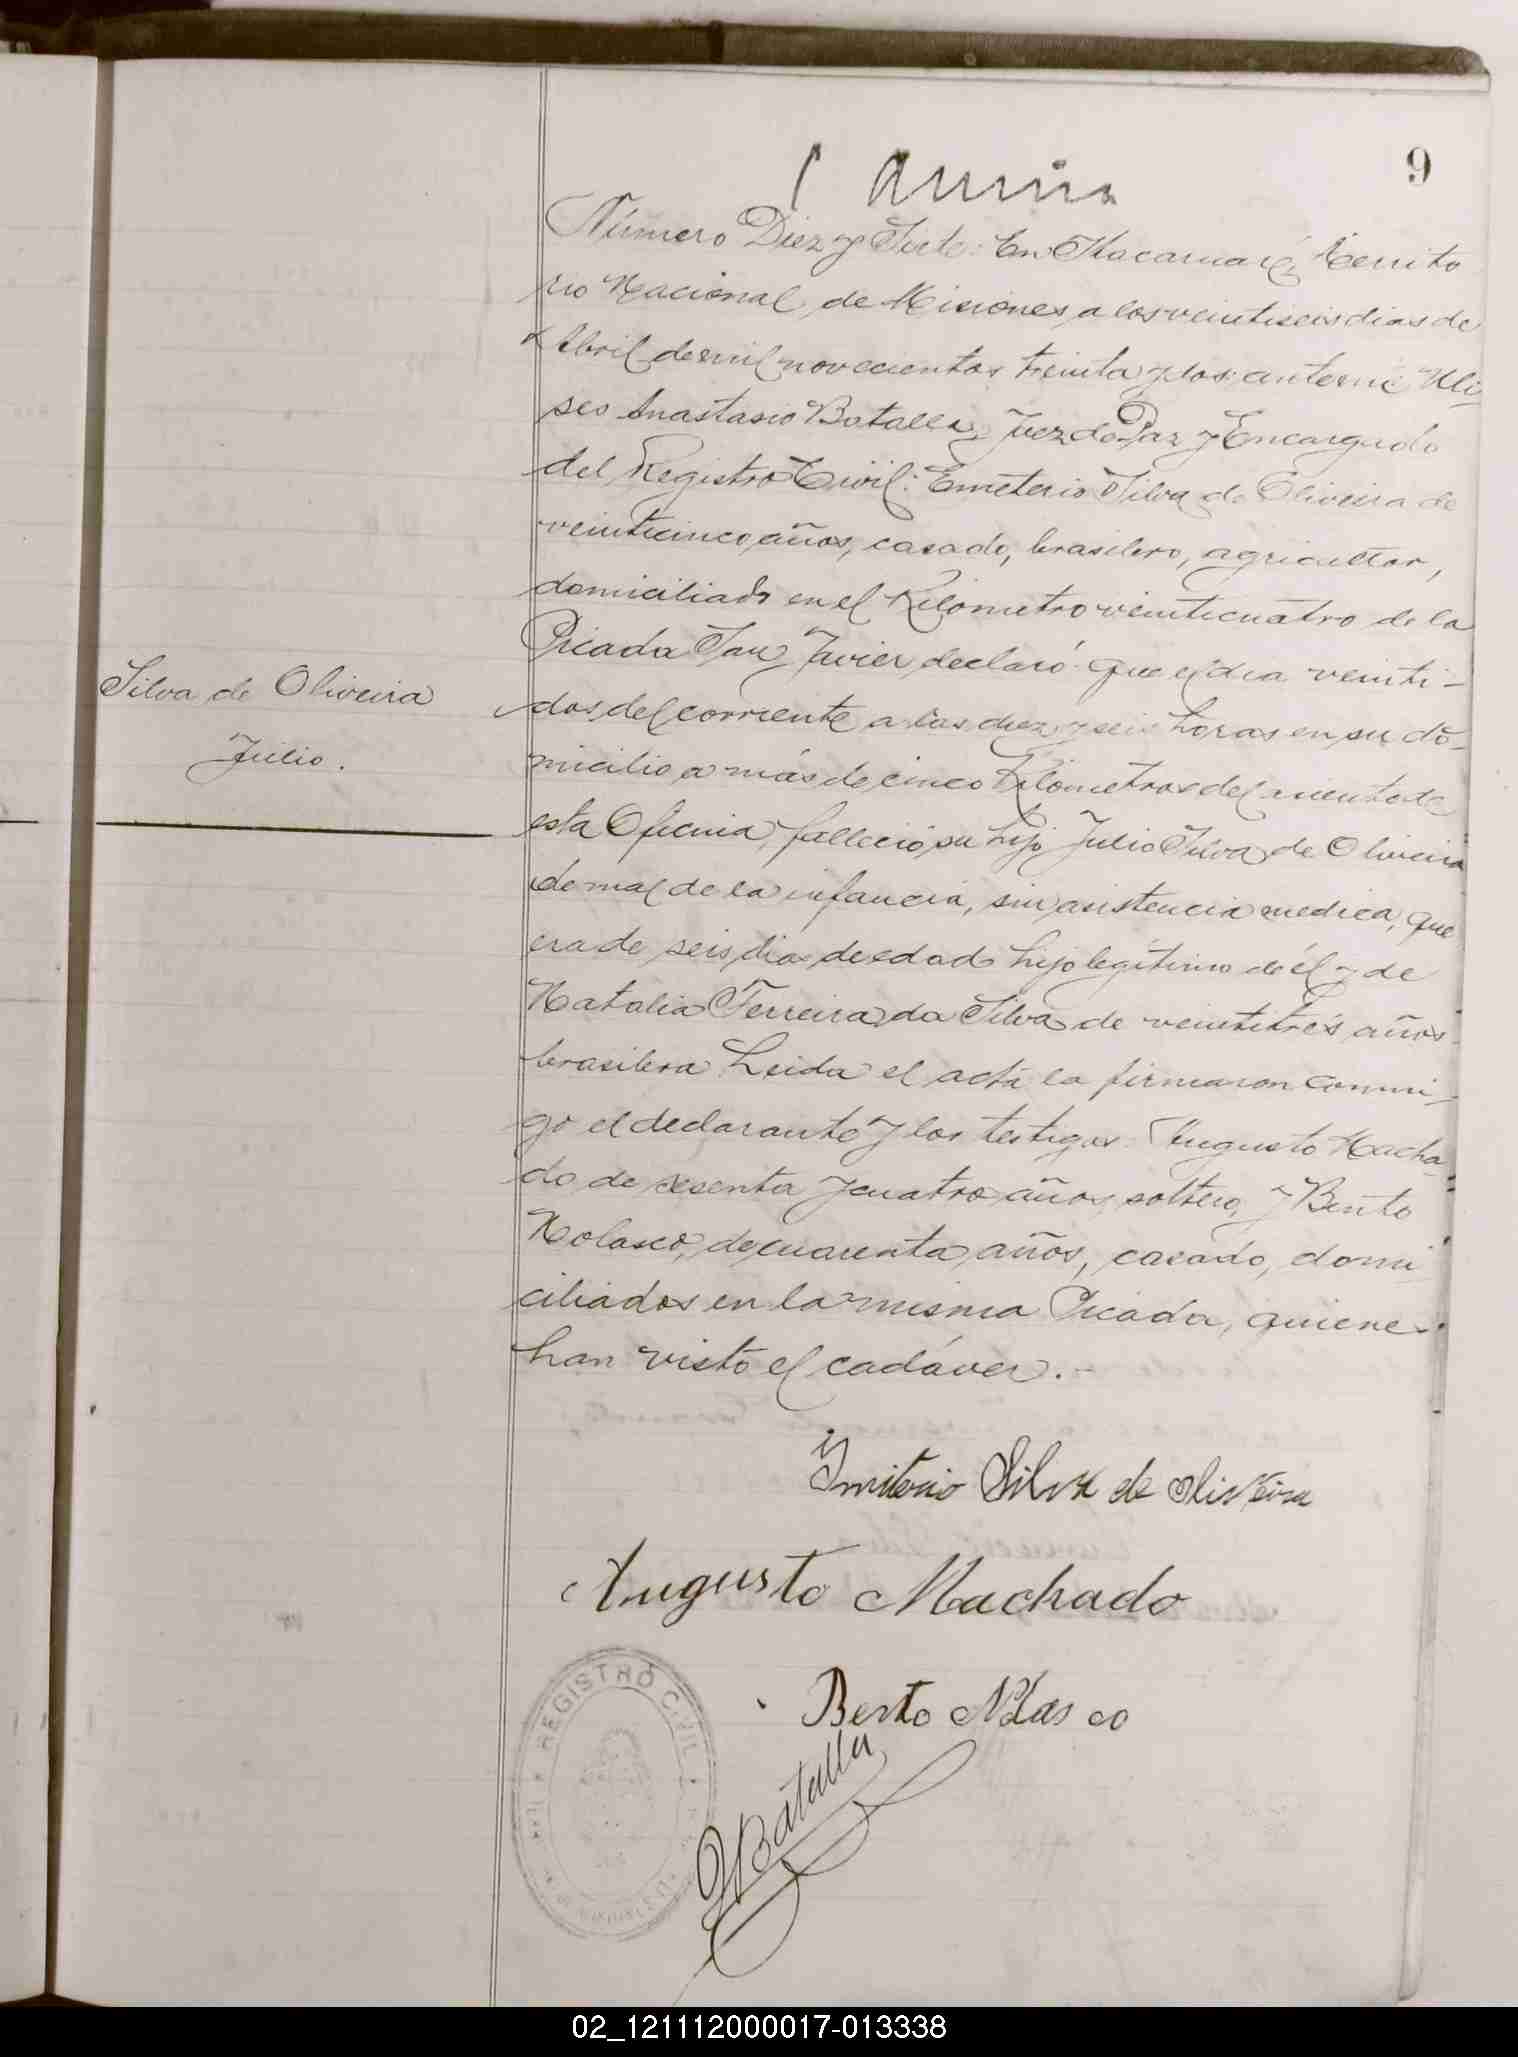 9
Número Diez y Siete: En Itacaruaré, Territo
rio Nacional de Misiones a los veintiseis dias de
Abril de mil novecientos treinta y dos: ante mi Uli-
ses Anastasio Batalla, Juez de Paz y Encargado
del Registro Civil: Emeterio Silva de Oliveira de
veinticinco años, casado, brasilero, agricultor,
domiciliado en el Kilometro veinticuatro de la
Picada San Javier declaró: que el dia veinti-
Silva de Oliveira
Julio.
dos del corriente a las diez y seis horas en su do-
micilio a más de cinco Kilometros del asiento de
esta Oficina, falleció su hijo Julio Silva de Oliveira
de mal de la infancia, sin asistencia medica, que
era de seis dias de edad hijo legítimo de él y de
Natalia Ferreira da Silva de veintitrés años
brasilera Leida el acta la firmaron conmi-
go el declarante y los testigos: Augusto Macha-
do de sesenta y cuatro años, soltero, y Bento
Nolasco, de cuarenta años, casado, domi
ciliados en la misma Picada, quienes
han visto el cadáver.-
Imiterio Silva de Oliveira
Augusto Machado
Bento Nolasco
Batalla
REGISTRO CIVIL
02_121112000017-013338